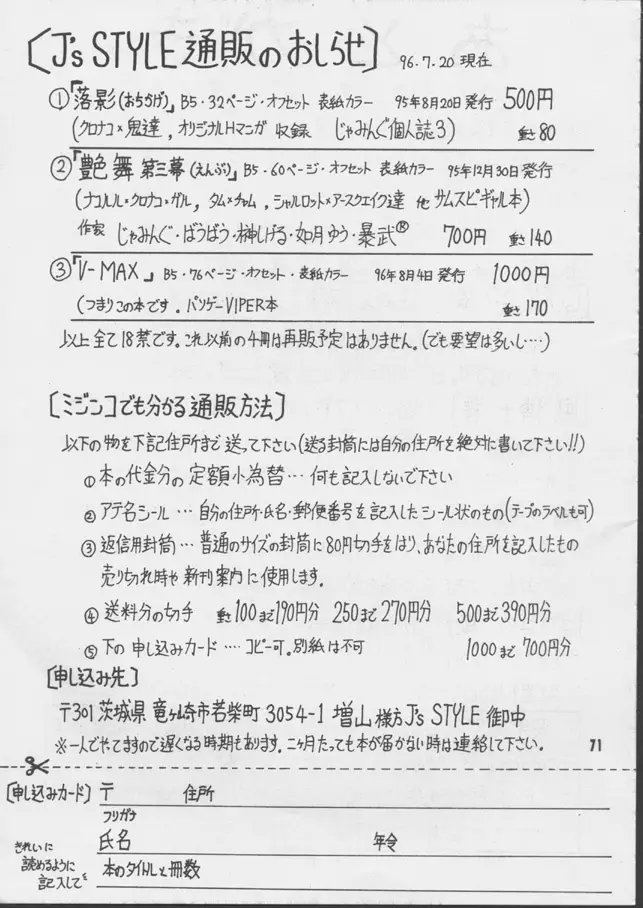 [J's STYLE 通販のおしらせ] 96.7.20 現在
①「落影(おちかげ)」B5・32ページ・オフセット 表紙カラー 95年8月20日発行 500円
(クロナコ×鬼達, オリジナルHマンガ 収録 じゃみんぐ個人誌3) 重さ80
②「艶舞 第三幕(えんぶ)」B5・60ページ・オフセット 表紙カラー 95年12月30日発行
(ナコルル×クロナコ×ガル, タム×チャム, シャルロット×アースクェイク達 他 サムスピギャル本)
作家 じゃみんぐ・ばうばう・榊しげる・如月ゆう・暴武® 700円 重さ140
③「V-MAX」B5・76ページ・オフセット・表紙カラー 96年8月4日発行 1000円
(つまりこの本です。パソゲーVIPER本 重さ170
以上全て18禁です。これ以前の4冊は再販予定はありません。(でも要望は多いし…)
[ミジンコでも分かる通販方法]
以下の物を下記住所まで送って下さい(送る封筒には自分の住所を絶対に書いて下さい!!)
①本の代金分の定額小為替…何も記入しないで下さい
②アテ名シール…自分の住所・氏名・郵便番号を記入したシール状のもの(テープのラベルも可)
③返信用封筒…普通のサイズの封筒に80円切手をはり、あなたの住所を記入したもの
売り切れ時や新刊案内に使用します。
④送料分の切手 重さ100まで190円分 250まで270円分 500まで390円分
⑤下の申し込みカード…コピー可。別紙は不可 1000まで700円分
[申し込み先]
〒301 茨城県竜ヶ崎市若柴町3054-1 増山様方J's STYLE御中
※一人でやってますので遅くなる時期もあります。二ヶ月たっても本が届かない時は連絡して下さい。 71
[申し込みカード] 〒 住所
フリガナ
氏名 年令
きれいに
読めるように
記入してを
本のタイトルと冊数